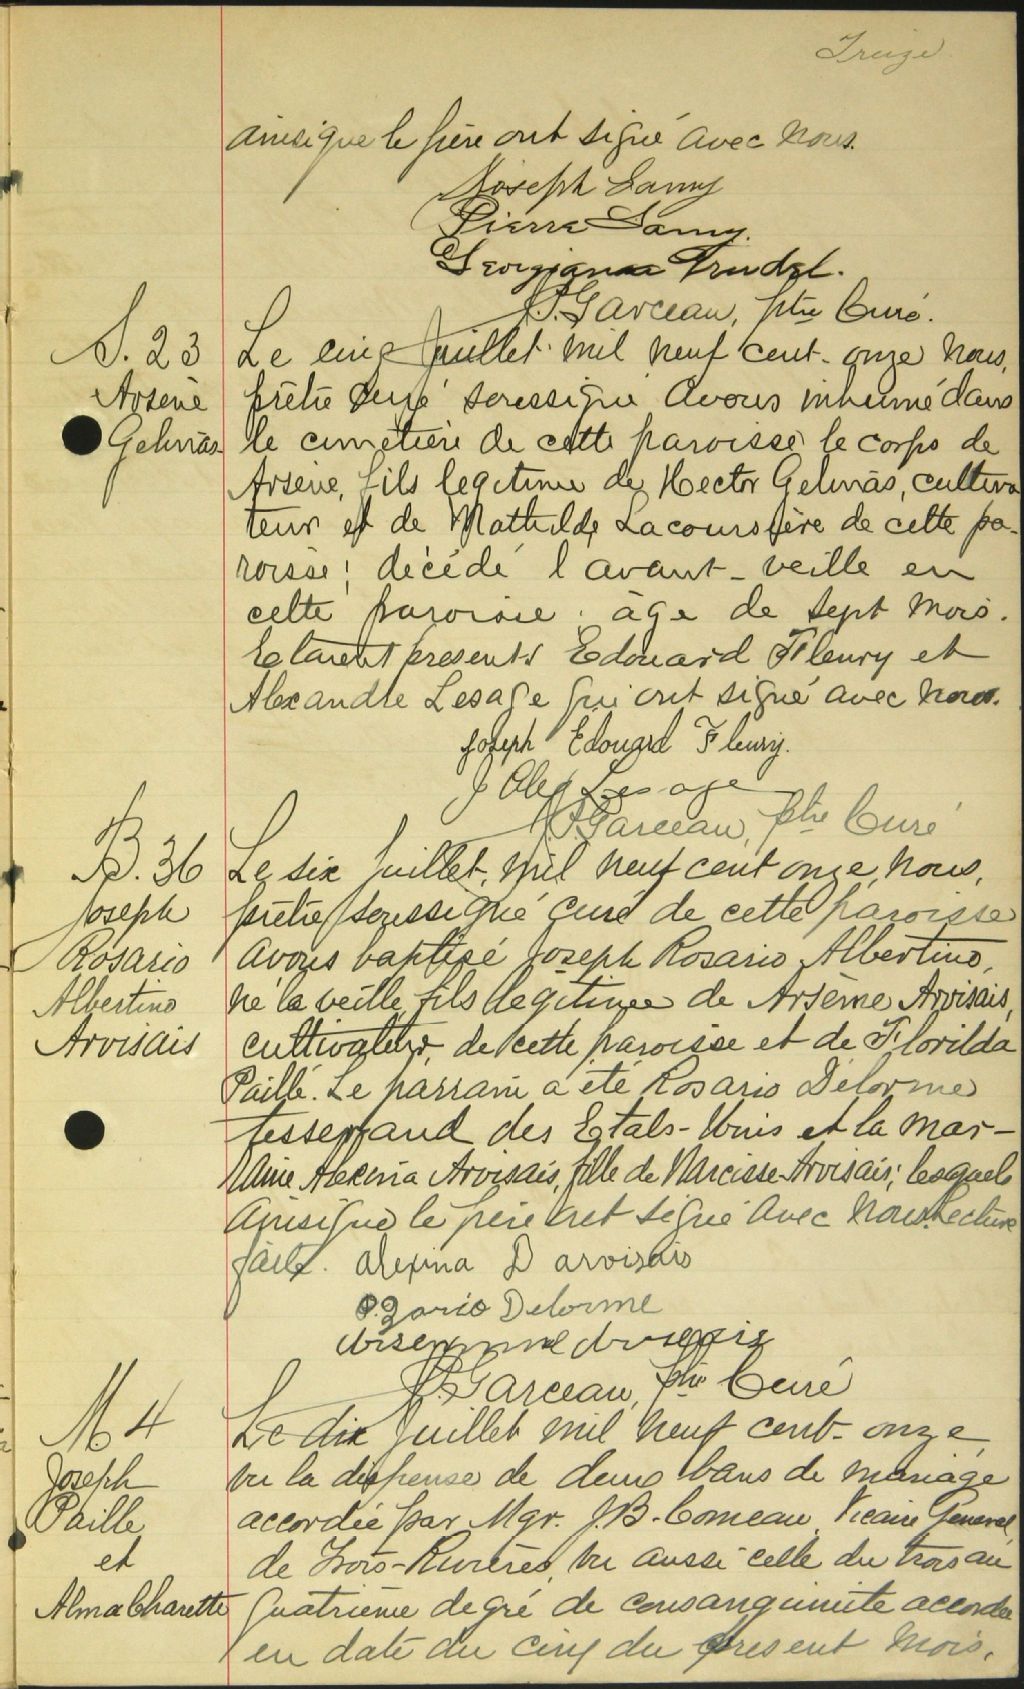 Treize
ainsi que le père ont signé avec nous.
Joseph Samy
Pierre Samy.
Georgianna Trudel.
J.P. Garceau, ptre Curé.
S. 23
Arsène
Gelinas
Le cinq Juillet mil neuf cent-onze nous,
prêtre curé soussigné avons inhumé dans
le cimetière de cette paroisse le corps de
Arsène, fils legitime de Hector Gelinas, cultiva
teur et de Mathilde Lacoursière de cette pa-
roisse; décédé l'avant-veille en
cette paroisse. âge de sept mois.
Etaient presents Edouard Fleury et
Alexandre Lesage qui ont signé avec nous.
Joseph Edouard Fleury.
J Alex Lesage
J.P. Garceau, ptre Curé
B. 36
Joseph
Rosario
Albertino
Arvisais
Le six Juillet, mil neuf cent onze, nous,
prêtre soussigné curé de cette paroisse
avons baptisé Joseph Rosario Albertino,
né la veille, fils légitime de Arsème Arvisais,
cultivateur de cette paroisse et de Florilda
Paillé. Le parrain a été Rosario Delorme
tisserand des Etats-Unis et la mar-
raine Alexina Arvisais, fille de Narcisse Arvisais; lesquels
ainsi que le père ont signé avec nous. Lecture
faite. Alexina D arvisais
Ozario Delorme
J.P. Garceau, ptre Curé
M 4
Joseph
Paille
et
Alma Charette
Le dix Juillet mil neuf cent-onze
vu la dispense de deux bans de mariage
accordée par Mgr. J.B. Comeau, Vicaire General
de Trois-Rivières, vu aussi celle du trois au
quatrième degré de consanguinité accordée
en date du cinq du present mois,